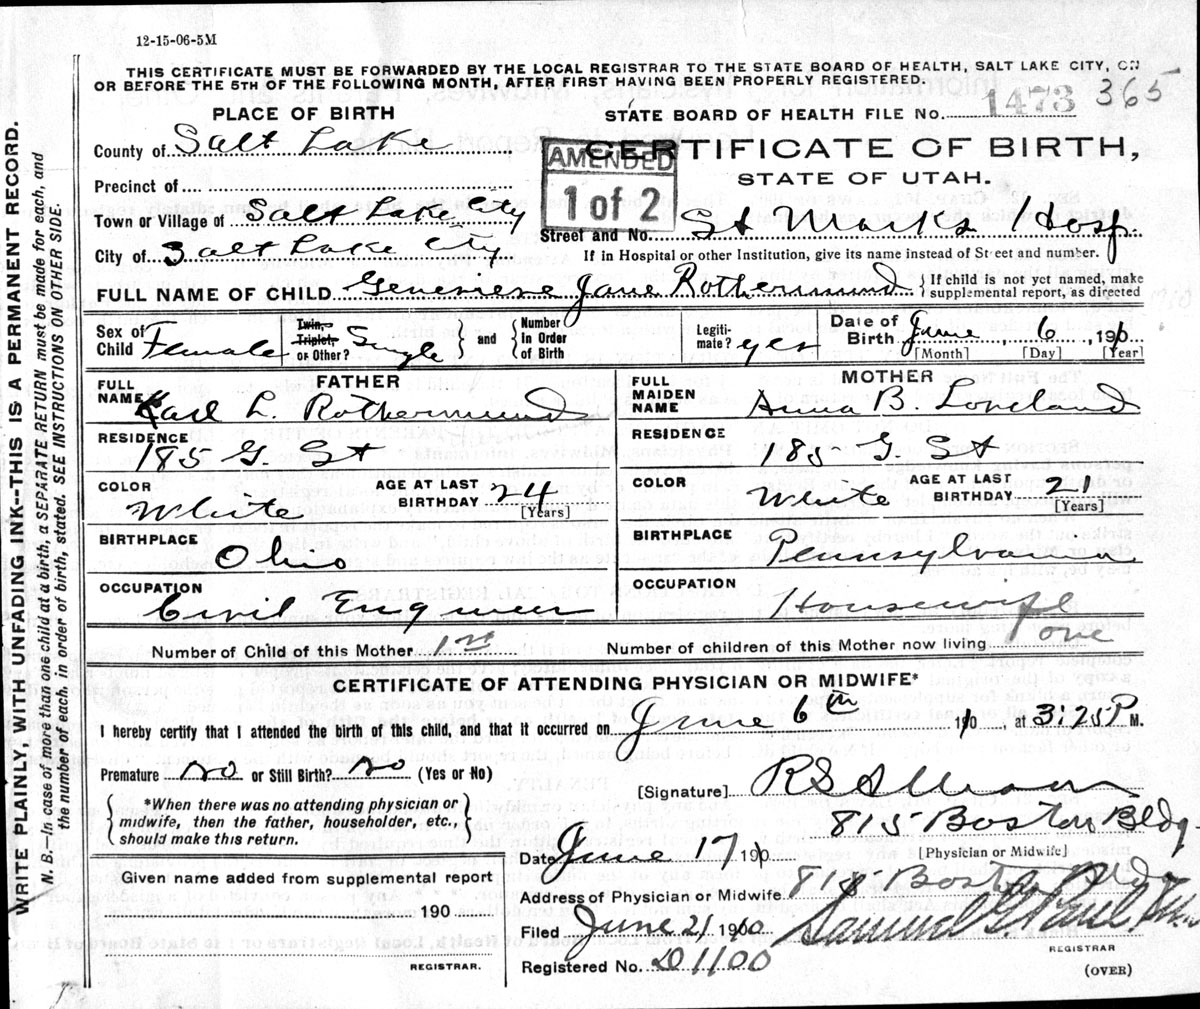 12-15-06-5M
THIS CERTIFICATE MUST BE FORWARDED BY THE LOCAL REGISTRAR TO THE STATE BOARD OF HEALTH, SALT LAKE CITY, ON
OR BEFORE THE 5TH OF THE FOLLOWING MONTH, AFTER FIRST HAVING BEEN PROPERLY REGISTERED.
PLACE OF BIRTH
STATE BOARD OF HEALTH FILE No. 1473 365
County of Salt Lake
AMENDED
1 of 2
CERTIFICATE OF BIRTH,
STATE OF UTAH.
Precinct of
Town or Village of Salt Lake City
Street and No. St Marks Hosp
City of Salt Lake City
If in Hospital or other Institution, give its name instead of Street and number.
FULL NAME OF CHILD Genevieve Jane Rothermund { If child is not yet named, make
supplemental report, as directed
Sex of Child Female
Twin, Triplet, or Other? Single
and { Number In Order of Birth
Legitimate? yes
Date of Birth June 6, 190
[Month] [Day] [Year]
FATHER
FULL NAME Karl L. Rothermund
RESIDENCE 185 G. St
COLOR White
AGE AT LAST BIRTHDAY 24
[Years]
BIRTHPLACE Ohio
OCCUPATION Civil Engineer
MOTHER
FULL MAIDEN NAME Anna B. Loveland
RESIDENCE 185 G. St
COLOR White
AGE AT LAST BIRTHDAY 21
[Years]
BIRTHPLACE Pennsylvania
OCCUPATION Housewife
Number of Child of this Mother 1st
Number of children of this Mother now living one
CERTIFICATE OF ATTENDING PHYSICIAN OR MIDWIFE*
I hereby certify that I attended the birth of this child, and that it occurred on June 6th 190, at 3:25 P M.
Premature No or Still Birth? No (Yes or No)
{ *When there was no attending physician or
midwife, then the father, householder, etc.,
should make this return. }
[Signature]
815 Boston Bldg
[Physician or Midwife]
Date June 17 190
Given name added from supplemental report
190
REGISTRAR.
Address of Physician or Midwife 815 Boston Bldg
Filed June 21 190
Samuel G. Paul
REGISTRAR
Registered No. D1100
(OVER)
WRITE PLAINLY, WITH UNFADING INK--THIS IS A PERMANENT RECORD.
N. B.—In case of more than one child at a birth, a SEPARATE RETURN must be made for each, and
the number of each, in order of birth, stated. SEE INSTRUCTIONS ON OTHER SIDE.